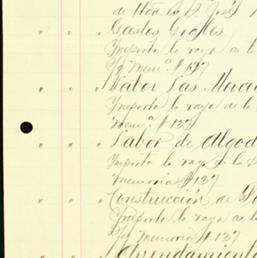 de Hda en S. José
" " Gastos Grales
Importa la raya de la
S/g Mema. #137
" " Labor Las Merced
Importa la raya de la
Mema. #137
" " Labor de Algod
Importa la raya de la S
memoria #137
" " Construcción de
Importa la raya de la
S/g Memoria #137
" " Arrendamiento